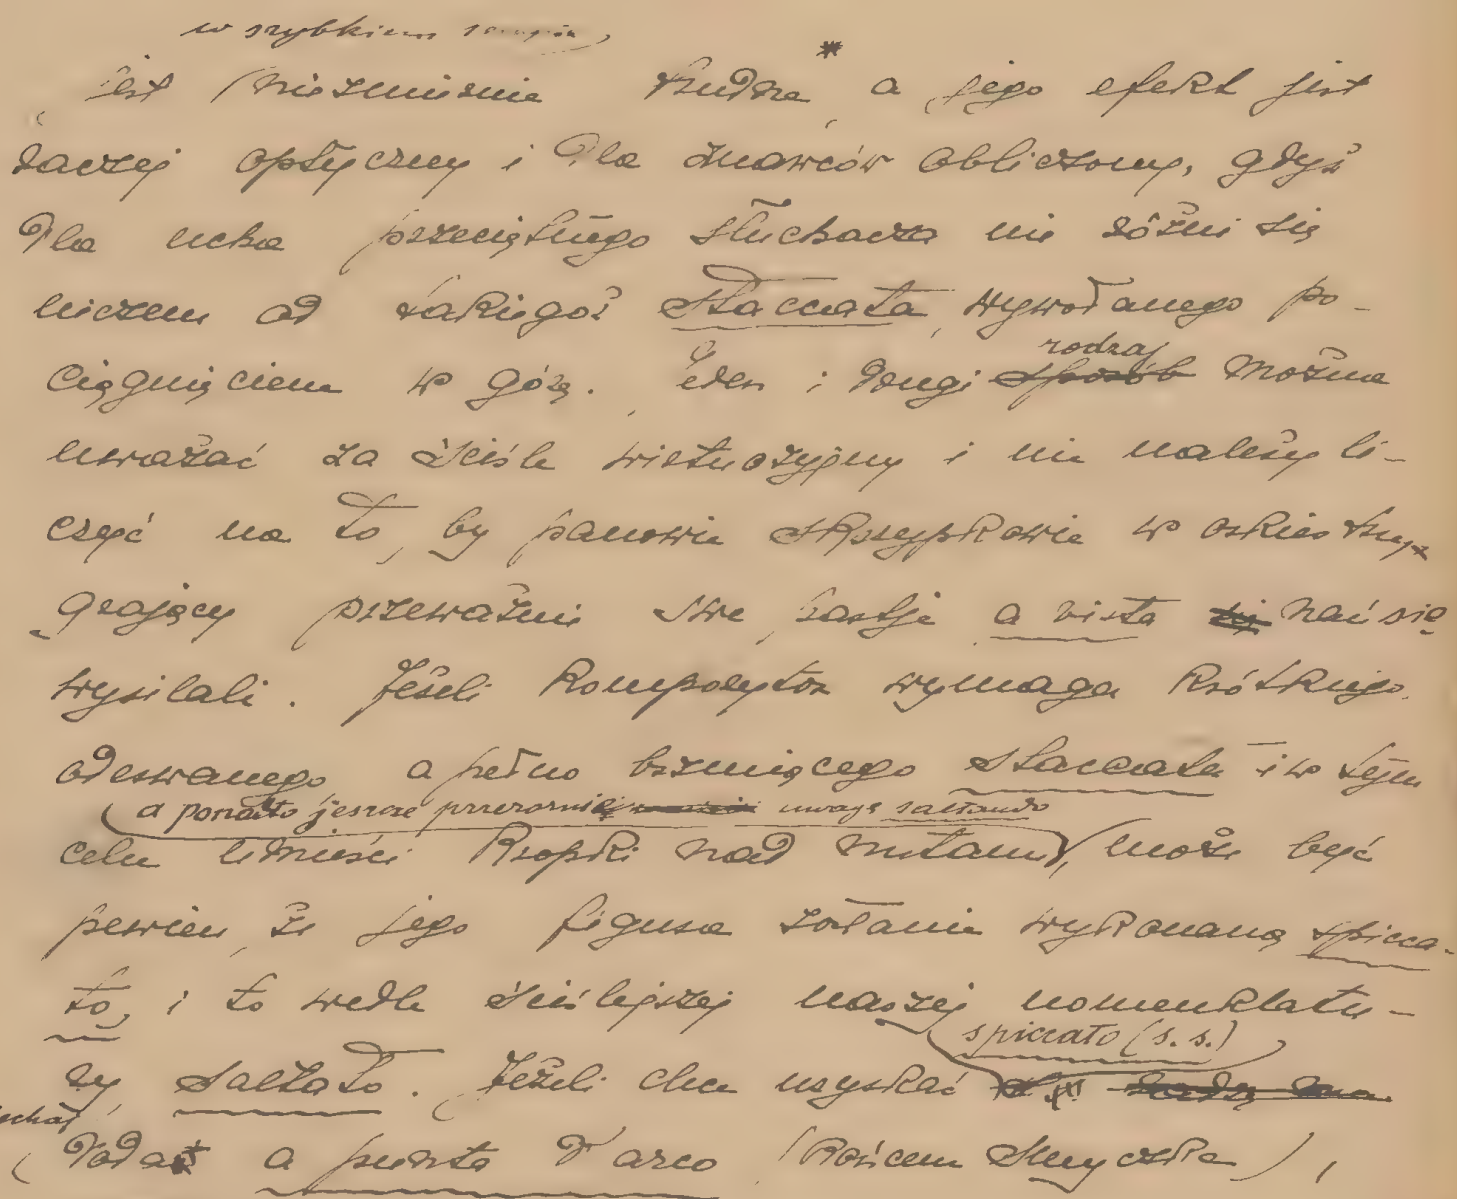 w szybkiem
jest (niezmiernie trudne,* a jego efekt jest
raczej optyczny i dla znawców obliczony, gdyż
dla ucha przeciętnego słuchacza nie różni się
niczem od takiegoż staccata, wywołanego po-
ciągnięciem w górę. Jeden i drugi sposób rodzaj można
uważać za ściśle wirtuozyjny i nie należy li-
czyć na to, by panowie skrzypkowie w orkiestrze
grający przeważnie swe partje a vista nań się
wysilali. Jeżeli kompozytor wymaga krótkiego
oderwanego a pełno brzmiącego staccata i w tym
a ponadto jeszcze przezornie uwagę saltando
celu umieści kropki nad nutami, może być
pewien, że jego figura zostanie wykonaną spicca-
to, i to wedle ściślejszej naszej nomenklatu-
spiccato (s. s.)
ry saltato. Jeżeli chce uzyskać
doda a punta d'arco (końcem smyczka),